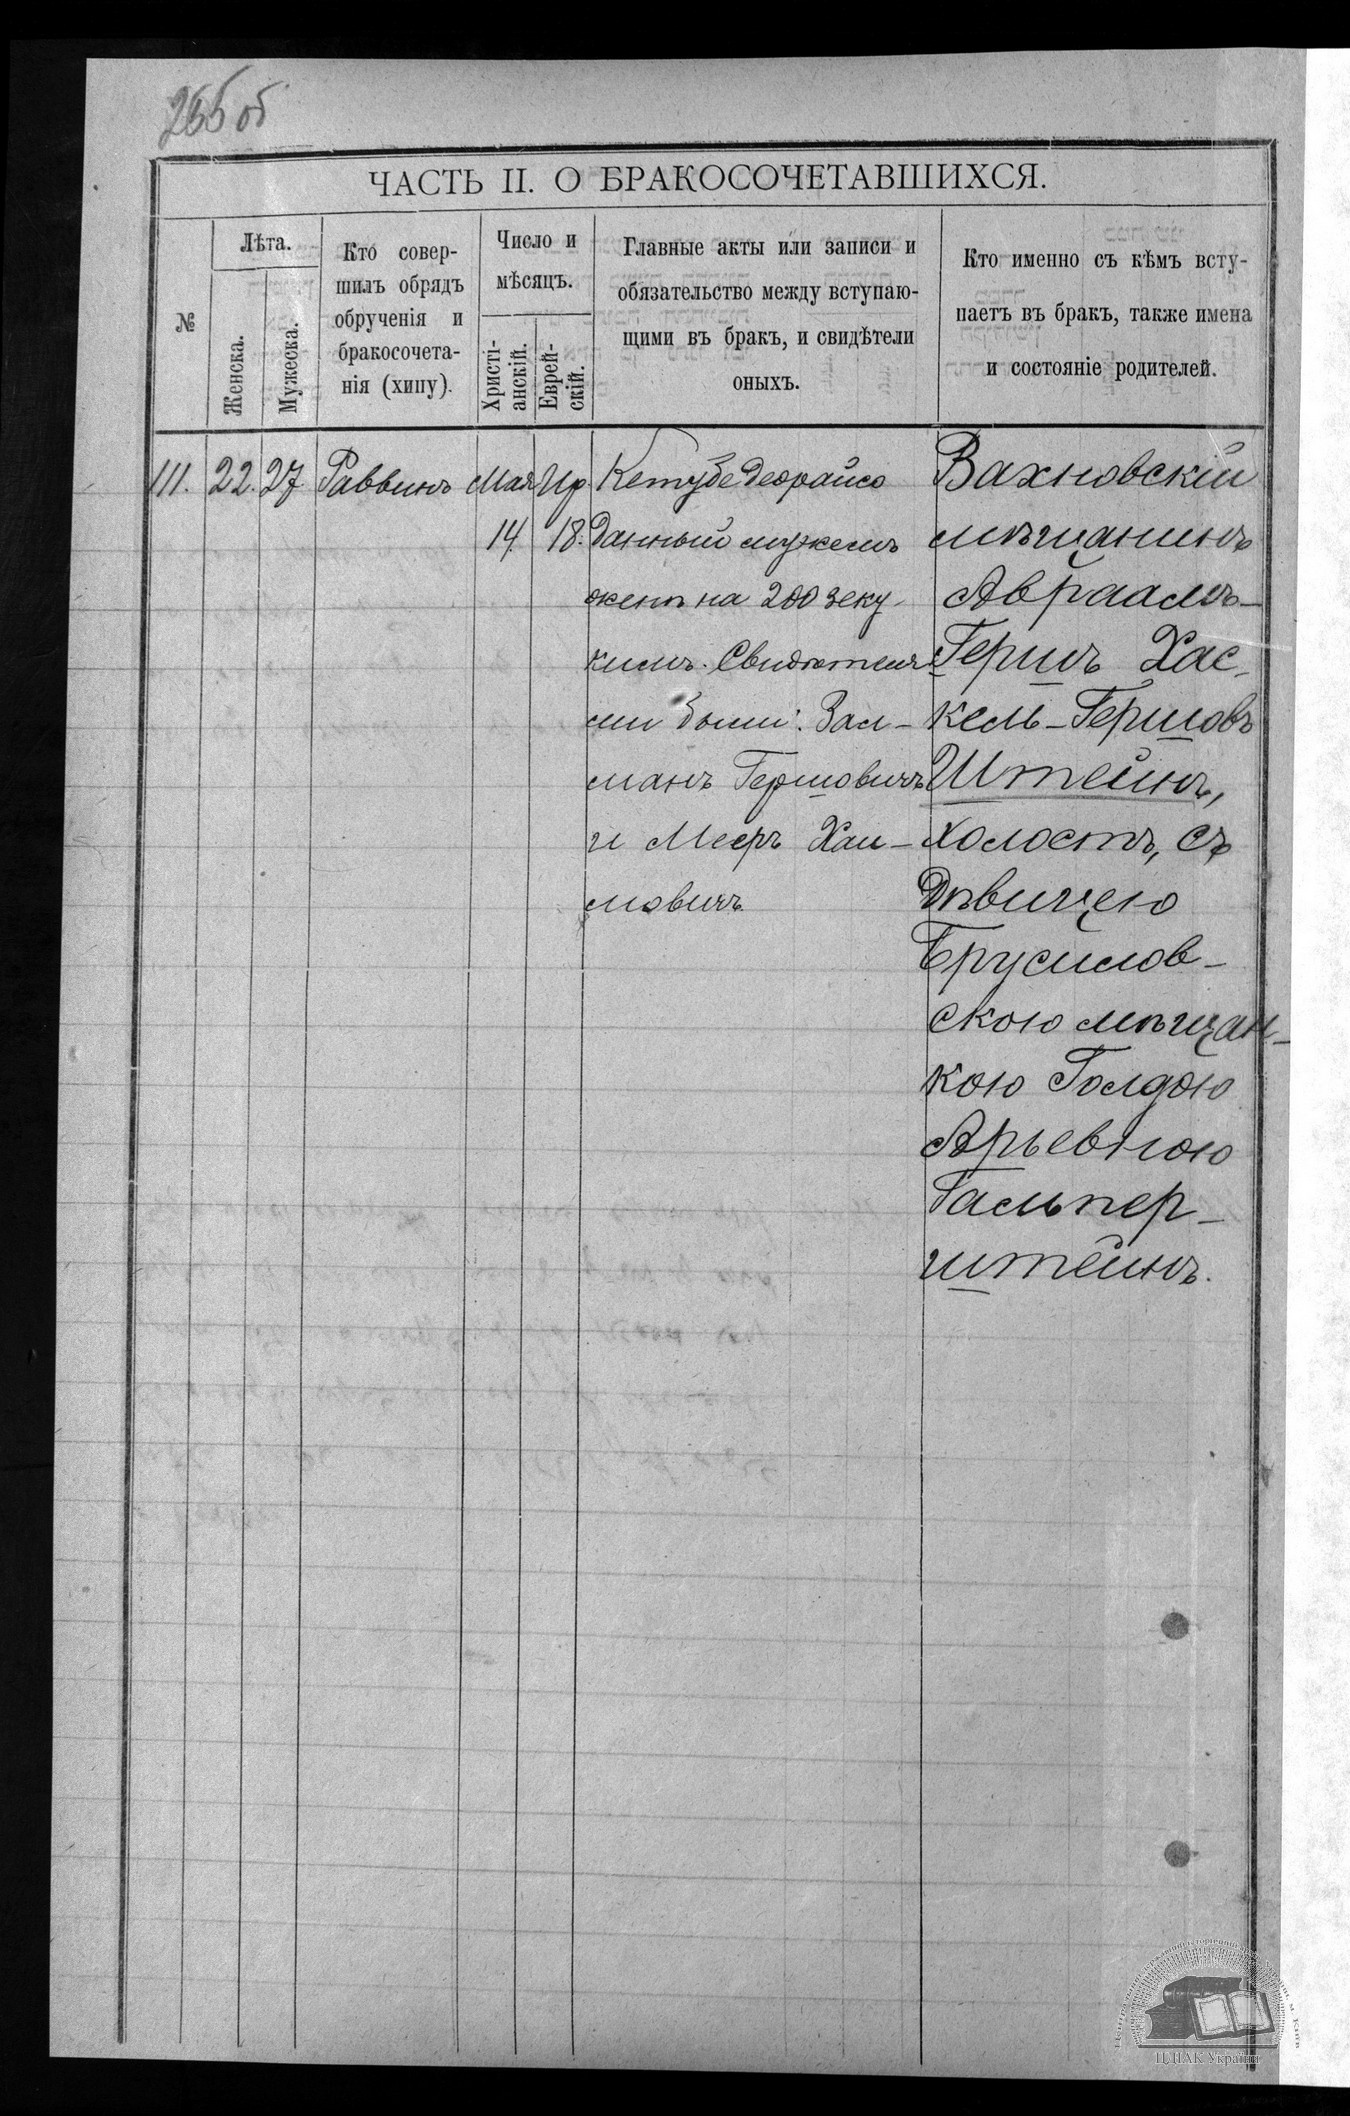 255 об
ЧАСТЬ II. О БРАКОСОЧЕТАВШИХСЯ.
№
Лѣта.
Женска.
Мужеска.
Кто совер-
шилъ обрядъ
обрученія и
бракосочета-
нія (хипу).
Число и
мѣсяцъ.
Христі-
анскій.
Еврей-
скій.
Главные акты или записи и
обязательство между вступаю-
щими въ бракъ, и свидѣтели
оныхъ.
Кто именно съ кѣмъ всту-
паетъ въ бракъ, также имена
и состояніе родителей.
111.
22.
27
Раввинъ
Мая
14.
Ир
18.
Кетубе деорайсо
данный мужемъ
женѣ на 200 зеку-
кимъ. Свидѣтеля-
ми были: Зал-
манъ Гершовичъ
и Мееръ Хаи-
мовичъ
Вахновскій
мѣщанинъ
Авраамъ-
Гершъ Хас-
кель-Гершовъ
Штейнъ,
холостъ, съ
дѣвицею
Брусилов-
скою мѣщан-
кою Голдою
Арьевною
Гальпер-
штейнъ.
ЦДІАК України